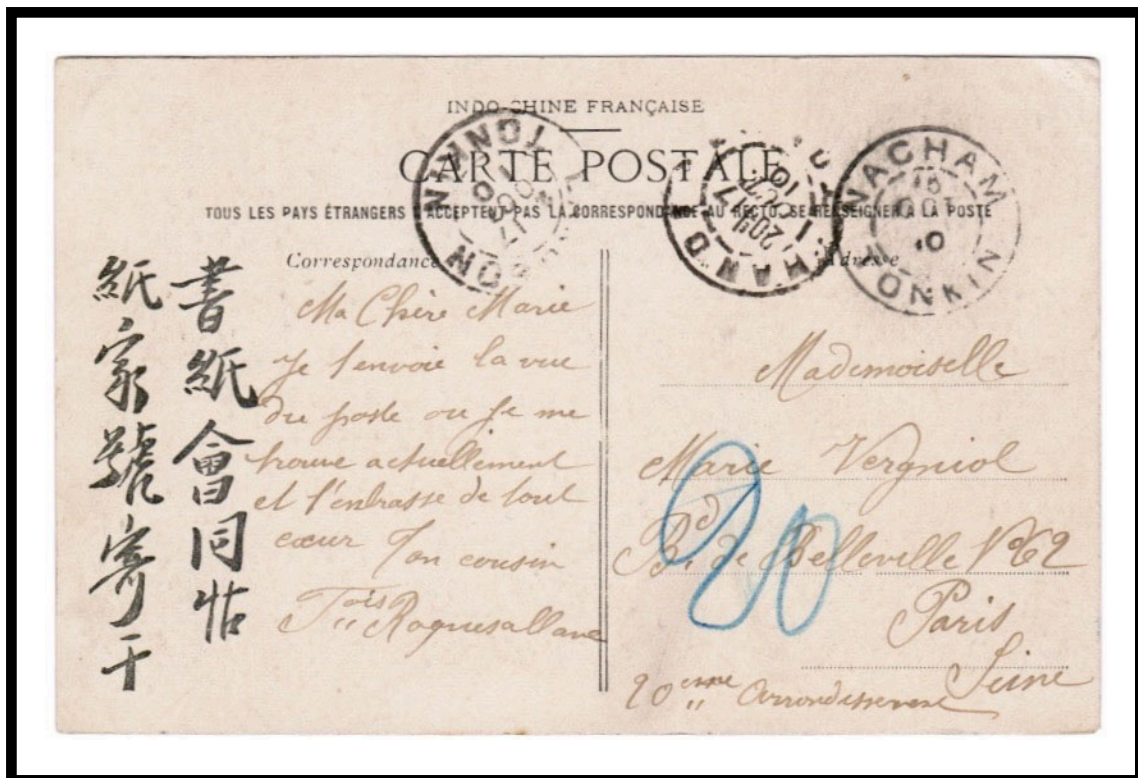 INDO-CHINE FRANÇAISE
CARTE POSTALE
TOUS LES PAYS ÉTRANGERS N'ACCEPTENT PAS LA CORRESPONDANCE AU RECTO, SE RENSEIGNER A LA POSTE
TONKIN
17
HANOI
17
OCT
10
NACHAM
15
OCT
10
TONKIN
Correspondance
Adresse
Ma Chère Marie
Je t'envoie la vue
du poste ou je me
trouve actuellement
et t'embrasse de tout
cœur Ton cousin
Mademoiselle
Marie Vergniol
Bd. de Belleville Nº 62
Paris
Seine
20eme arrondissement
20
書紙會同帖
紙家號寄干